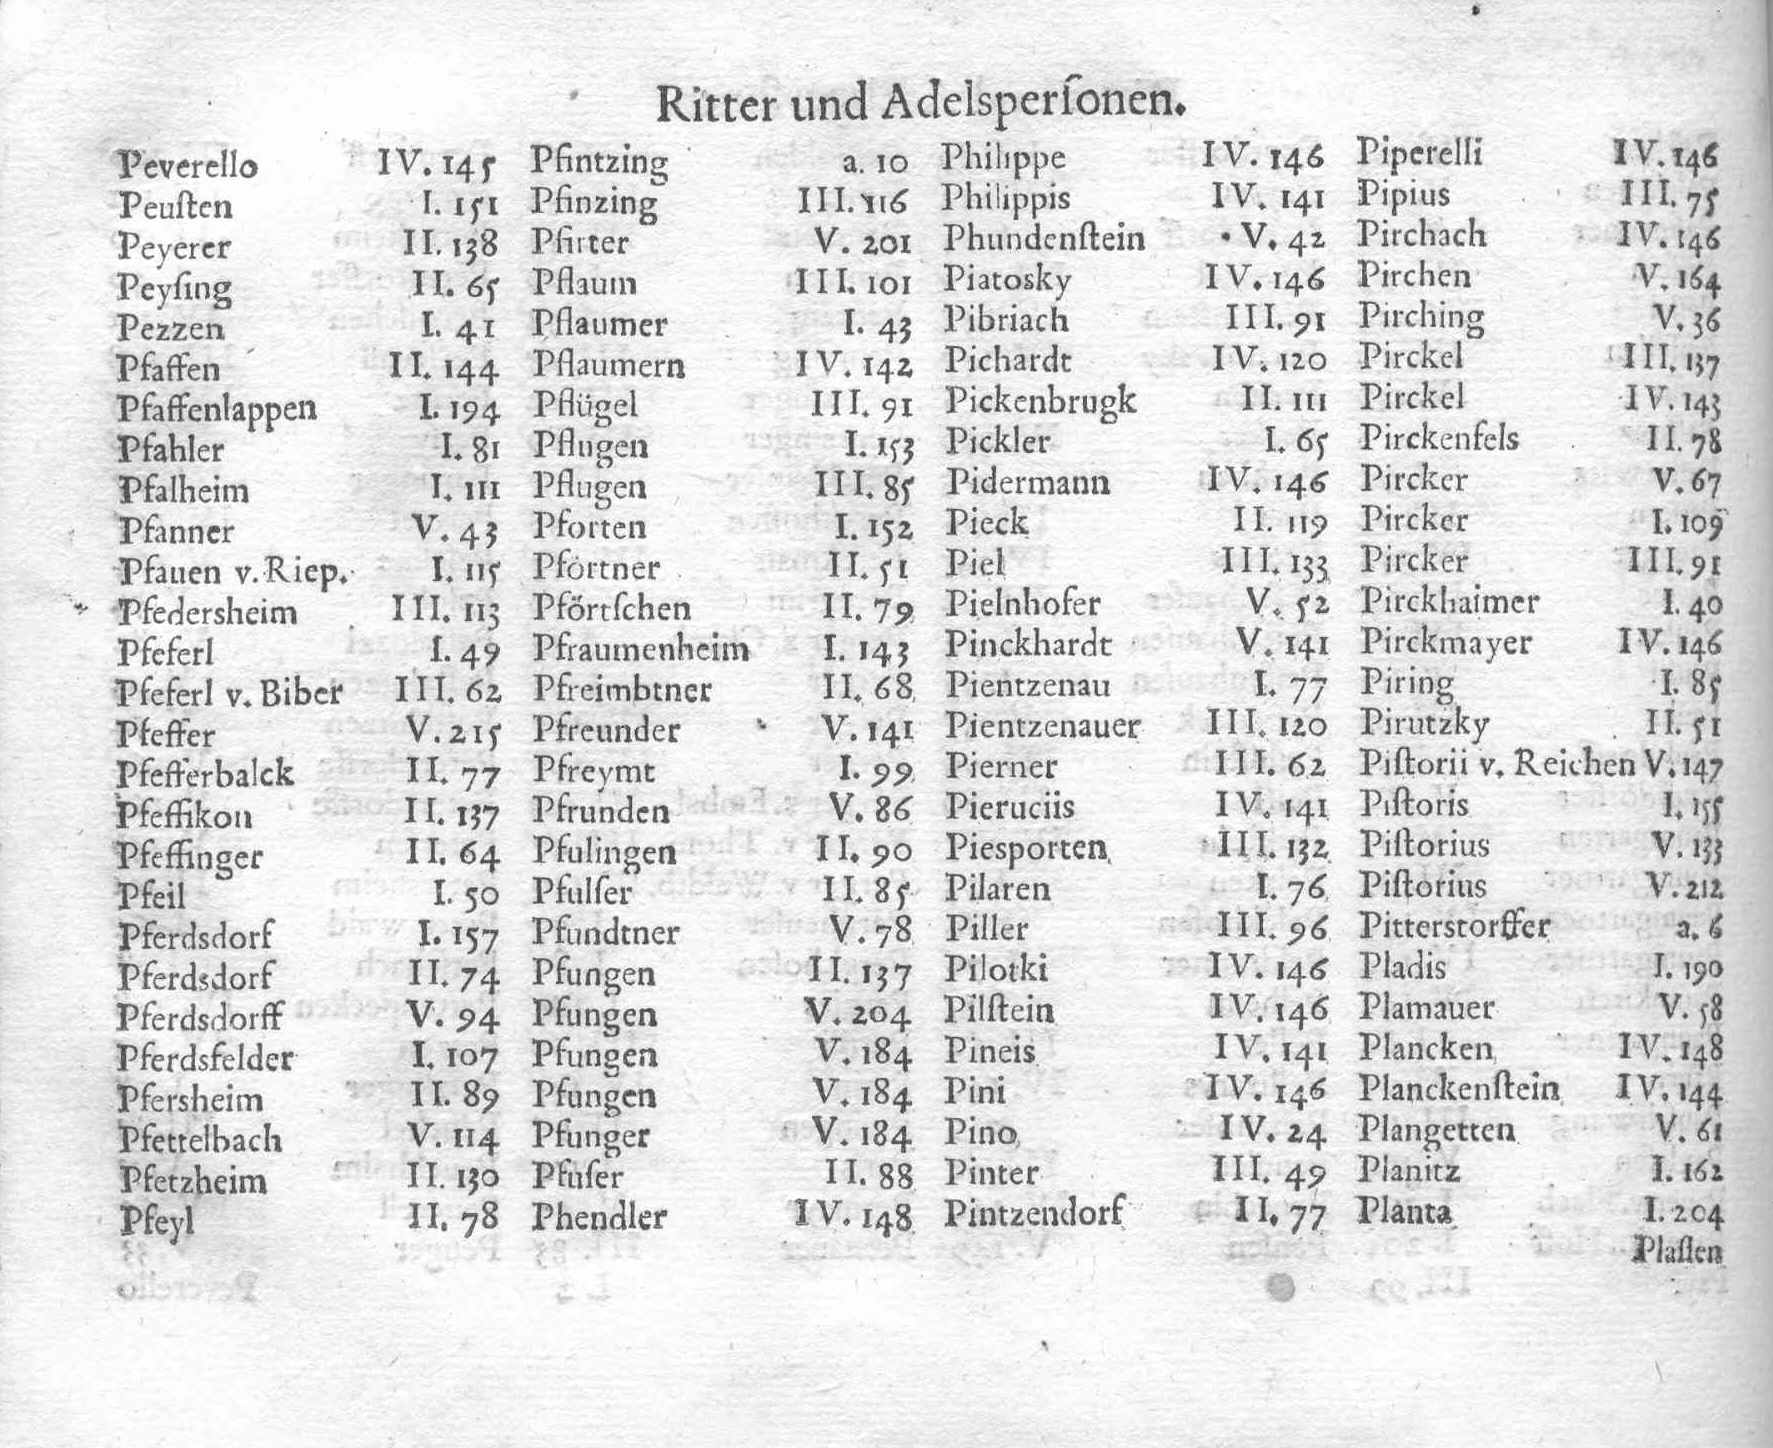 Ritter und Adelsperſonen.
Peverello IV. 145
Peuſten I. 151
Peyerer II. 138
Peyſing II. 65
Pezzen I. 41
Pfaffen II. 144
Pfaffenlappen I. 194
Pfahler I. 81
Pfalheim I. 111
Pfanner V. 43
Pfauen v. Riep. I. 115
Pfedersheim III. 113
Pfeferl I. 49
Pfeferl v. Biber III. 62
Pfeffer V. 215
Pfefferbalck II. 77
Pfeffikon II. 137
Pfeffinger II. 64
Pfeil I. 50
Pferdsdorf I. 157
Pferdsdorf II. 74
Pferdsdorff V. 94
Pferdsfelder I. 107
Pfersheim II. 89
Pfettelbach V. 114
Pfetzheim II. 130
Pfeyl II. 78
Pfintzing a. 10
Pfinzing III. 116
Pfirter V. 201
Pflaum III. 101
Pflaumer I. 43
Pflaumern IV. 142
Pflügel III. 91
Pflugen I. 153
Pflugen III. 85
Pforten I. 152
Pförtner II. 51
Pförtſchen II. 79
Pfraumenheim I. 143
Pfreimbtner II. 68
Pfreunder V. 141
Pfreymt I. 99
Pfrunden V. 86
Pfulingen II. 90
Pfulſer II. 85
Pfundtner V. 78
Pfungen II. 137
Pfungen V. 204
Pfungen V. 184
Pfungen V. 184
Pfunger V. 184
Pfuſer II. 88
Phendler IV. 148
Philippe IV. 146
Philippis IV. 141
Phundenſtein V. 42
Piatosky IV. 146
Pibriach III. 91
Pichardt IV. 120
Pickenbrugk II. 111
Pickler I. 65
Pidermann IV. 146
Pieck II. 119
Piel III. 133
Pielnhofer V. 52
Pinckhardt V. 141
Pientzenau I. 77
Pientzenauer III. 120
Pierner III. 62
Pieruciis IV. 141
Piesporten III. 132
Pilaren I. 76
Piller III. 96
Pilotki IV. 146
Pilſtein IV. 146
Pineis IV. 141
Pini IV. 146
Pino IV. 24
Pinter III. 49
Pintzendorf II. 77
Piperelli IV. 146
Pipius III. 75
Pirchach IV. 146
Pirchen V. 164
Pirching V. 36
Pirckel III. 137
Pirckel IV. 143
Pirckenfels II. 78
Pircker V. 67
Pircker I. 109
Pircker III. 91
Pirckhaimer I. 40
Pirckmayer IV. 146
Piring I. 85
Pirutzky II. 51
Piſtorii v. Reichen V. 147
Piſtoris I. 155
Piſtorius V. 133
Piſtorius V. 212
Pitterstorffer a. 6
Pladis I. 190
Plamauer V. 58
Plancken IV. 148
Planckenſtein IV. 144
Plangetten V. 61
Planitz I. 162
Planta I. 204
Plaſſen